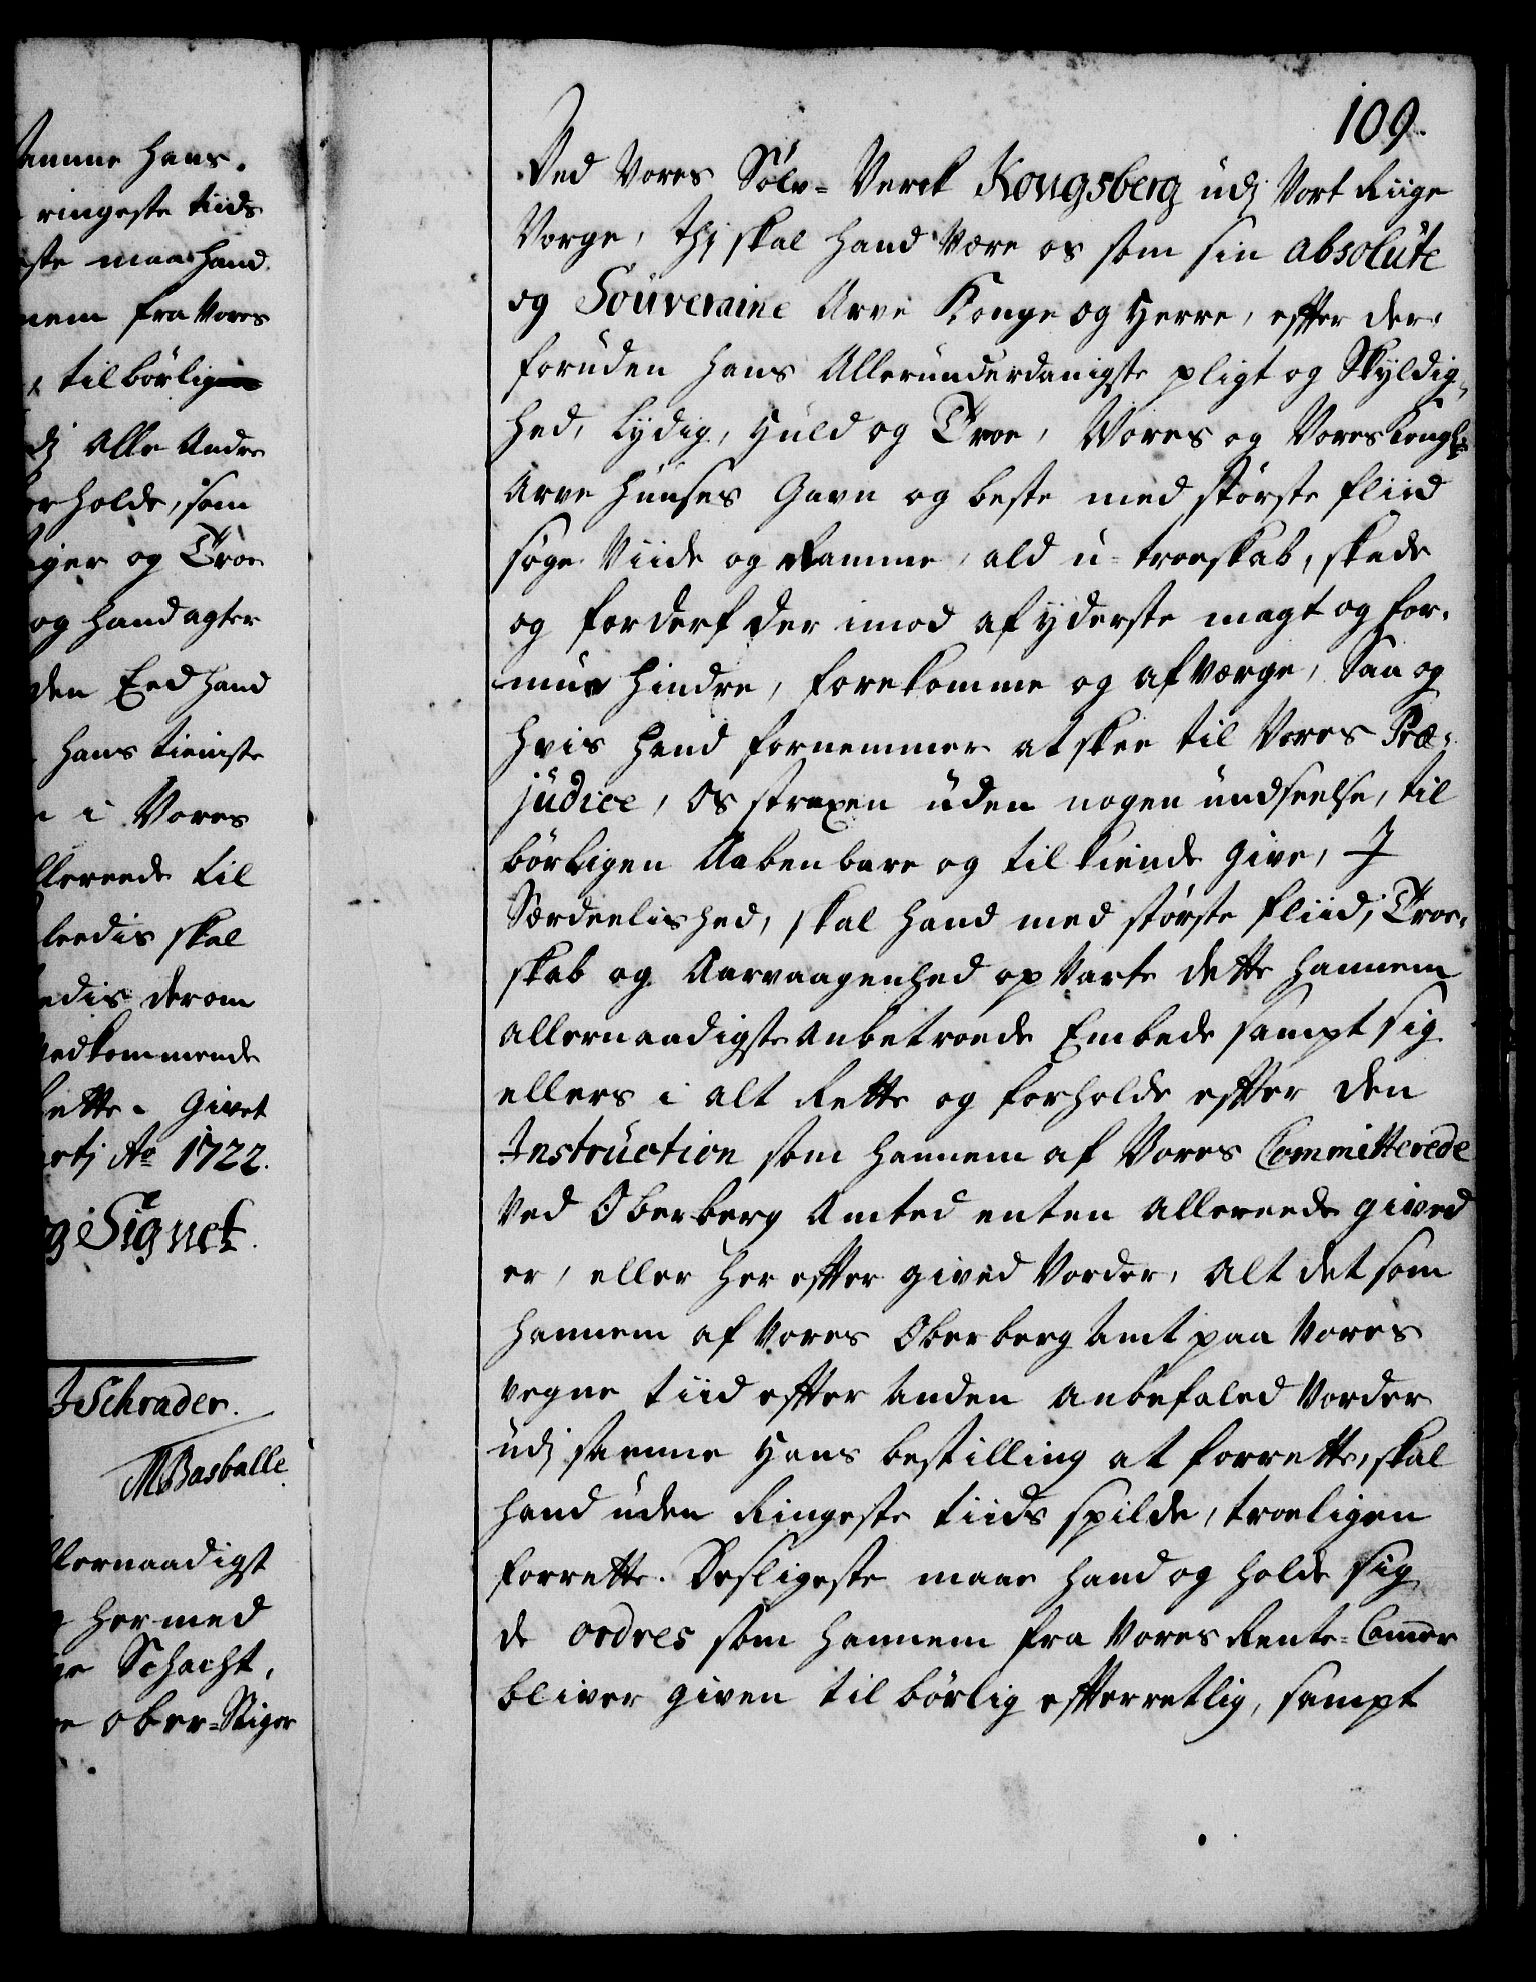 amme hans.
ringeste tiids
ste maa hand
nem fra Vores
tilbørlig
dj Alle Andre
rholde, som
ger og Troe
og hand agter
den Eed hand
hans tieniste
i Vores
llereede til
leedis skal
edis derom
Vedkommende
rette. Givet
rtj Ao 1722.
g Signet.
Schrader.
M Basballe
llernaadigst
her med
ge Schacht,
ober-Stiger
109.
Ved Vores Sølv-Verck Kongsberg udj Vort Riige
Norge, thj skal hand Være os som sin absolute
og Souveraine Arve Konge og Herre, effter der
foruden hans Allerunderdanigste pligt og Skyldig,
hed, Lydig, Huld og Troe, Vores og Vores Kongl:
Arve Huuses Gavn og beste med største fliid
søge Viide og Ramme, ald u-troeskab, skade
og forderf der imod af yderste magt og for,
mue hindre, forekomme og afværge, Saa og
hvis hand fornemmer at skee til Vores Præ,
judice, Os straxen uden nogen undseelse, til
børligen Aabenbare og tilkiende give, J
Særdeelished, skal hand med største fliid, Troe,
skab og Aarvaagenhed opvarte dette hannem
allernaadigste anbetroede Embede sampt sig
ellers i alt Rette og forholde effter den
Instruction som hannem af Vores Committerede
Ved Oberberg Amted enten allereede gived
er, eller her effter gived Vorder, Alt det som
hannem af Vores Oberberg Amt paa Vores
vegne tiid effter anden anbefaled Vorder
udj samme Hans bestilling at forrette, skal
hand uden Ringeste tiids spilde, troeligen
forrette. Desligeste maae hand og holde sig
de ordres som hannem fra Vores Rente-Camer
bliver given til børlig effterretlig, sampt